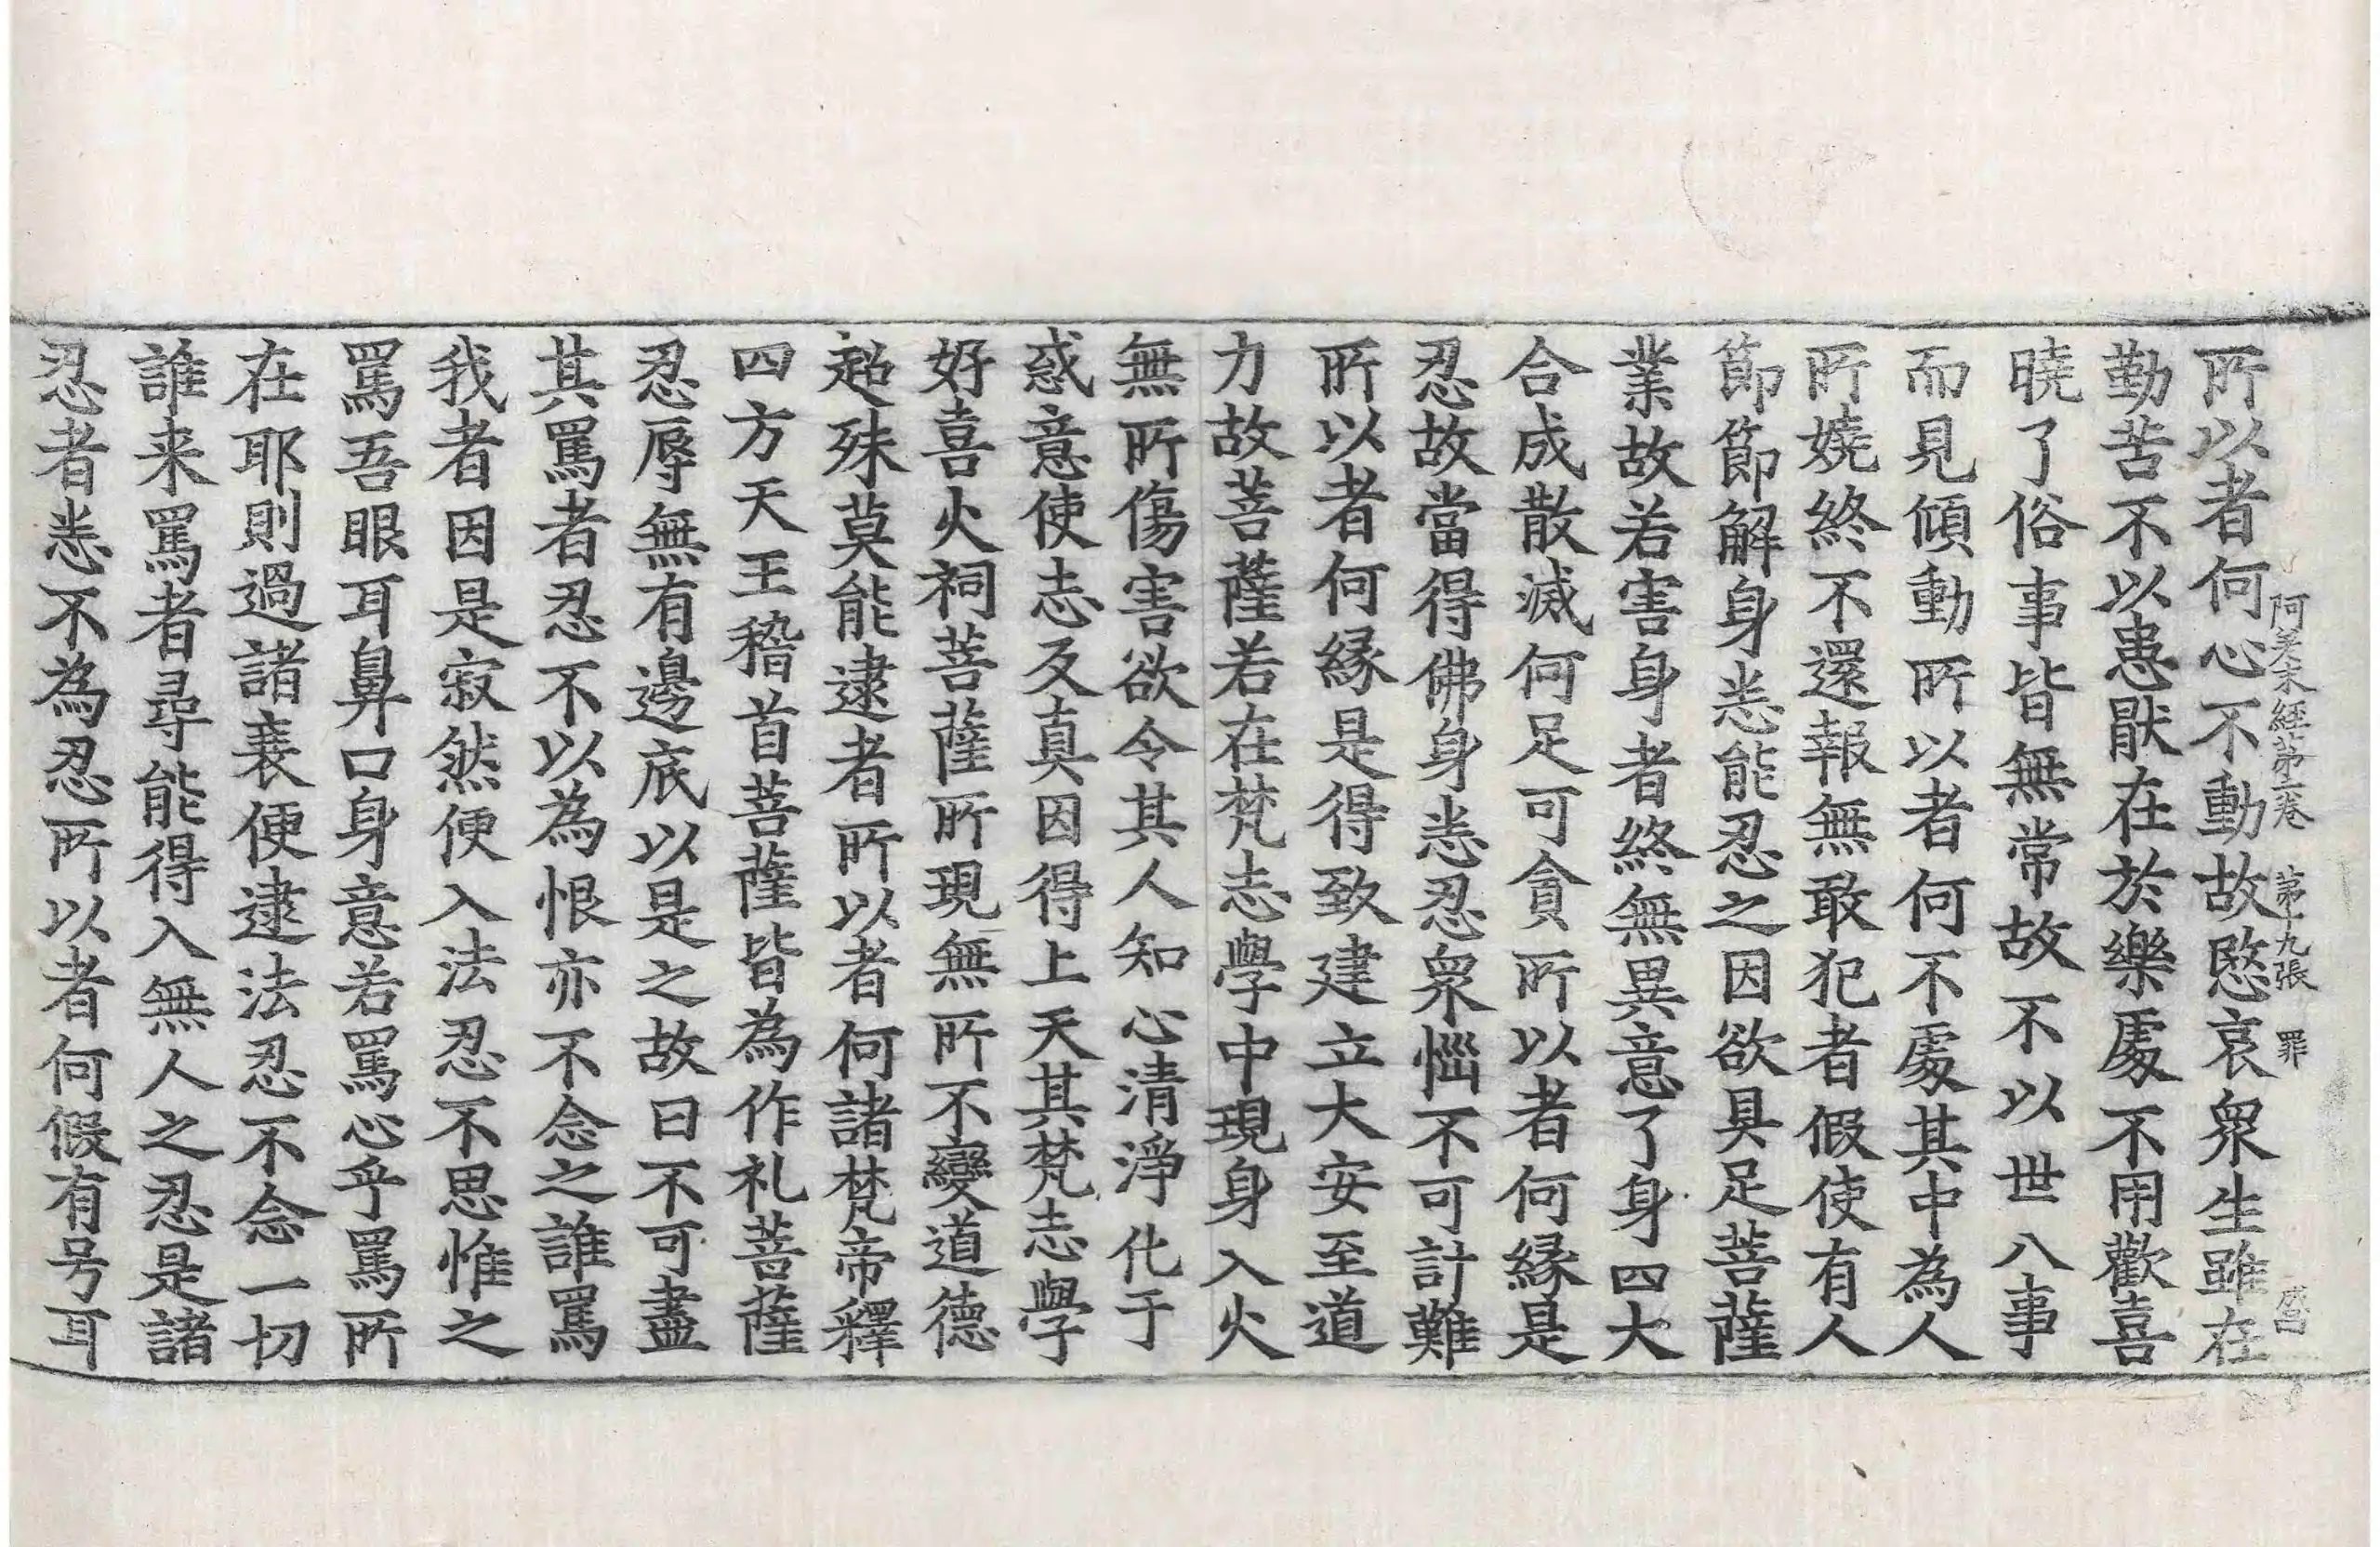 阿差末經第二卷　第十九張　罪
所以者何心不動故愍哀衆生雖在
勤苦不以患猒在於樂處不用歡喜
曉了俗事皆無常故不以世八事
而見傾動所以者何不處其中為人
所嬈終不還報無敢犯者假使有人
節節解身悉能忍之因欲具足菩薩
業故若害身者終無異意了身四大
合成散滅何足可貪所以者何緣是
忍故當得佛身悉忍衆惱不可計難
所以者何緣是得致建立大安至道
力故菩薩若在梵志學中現身入火
無所傷害欲令其人知心清淨化于
惑意使志反真因得上天其梵志學
好喜火祠菩薩所現無所不變道德
超殊莫能逮者所以者何諸梵帝釋
四方天王稽首菩薩皆為作礼菩薩
忍辱無有邊底以是之故曰不可盡
其罵者忍不以為恨亦不念之誰罵
我者因是寂然便入法忍不思惟之
罵吾眼耳鼻口身意若罵心乎罵所
在耶則過諸衰便逮法忍不念一切
誰来罵者尋能得入無人之忍是諸
忍者悉不為忍所以者何假有号耳